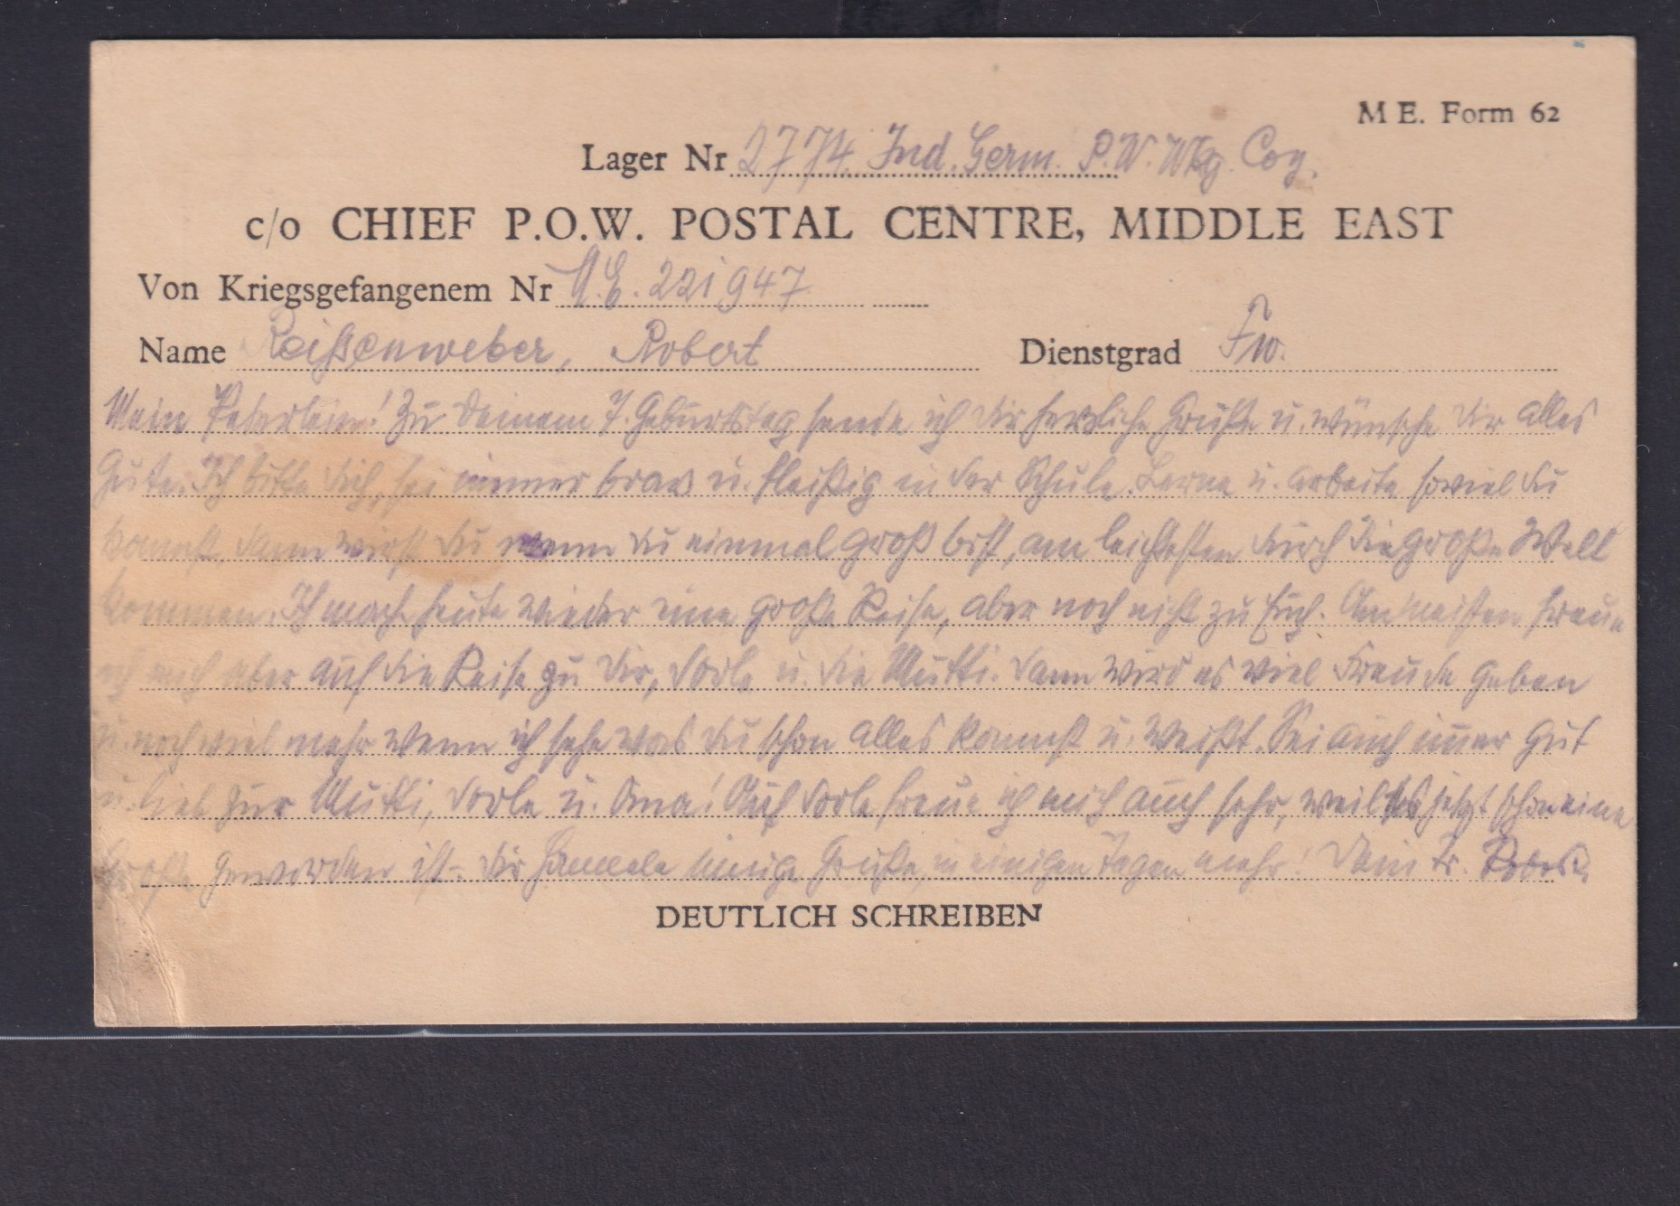 M E. Form 62
Lager Nr 2774. Ind. Germ. P.W. Wkg. Coy.
c/o CHIEF P.O.W. POSTAL CENTRE, MIDDLE EAST
Von Kriegsgefangenem Nr M.E. 221947
Name Reißenweber, Robert Dienstgrad Fw.
Mein Peterlein! Zu Deinem 7. Geburtstag sende ich Dir herzliche Grüße u. wünsche Dir alles
Gute. Ich bitte Dich, sei immer brav u. fleißig in der Schule. Lerne u. arbeite soviel du
kannst, dann wirst du wenn du einmal groß bist, am leichtesten durch die große Welt
kommen. Ich mach heute wieder eine große Reise, aber noch nicht zu Euch. Am meisten freue
ich mich aber auf die Reise zu Dir, Dorle u. die Mutti. Dann wird es viel Freude geben
u. noch viel mehr wenn ich sehe was du schon alles kannst u. weißt. Sei auch im̅er gut
u. lieb zur Mutti, Dorle u. Oma! Auf Dorle freue ich mich auch sehr, weil jetzt schon eine
Große geworden ist. Dir innige Grüße, in einigen Tagen mehr! Dein Robert.
DEUTLICH SCHREIBEN